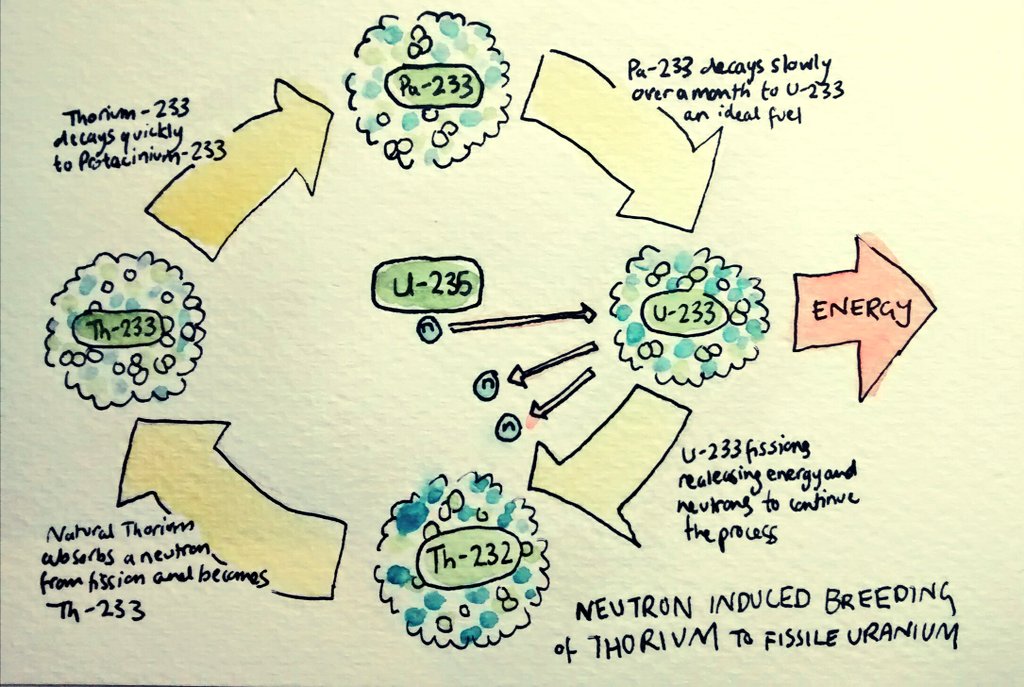 Pa-233
Pa-233 decays slowly
over a month to U-233
an ideal fuel
Thorium-233
decays quickly
to Protacinium-233
Th-233
U-235
n
U-233
ENERGY
n
n
U-233 fissions
realeasing energy and
neutrons to continue
the process
Th-232
Natural Thorium
absorbs a neutron
from fission and becomes
Th-233
NEUTRON INDUCED BREEDING
of THORIUM TO FISSILE URANIUM